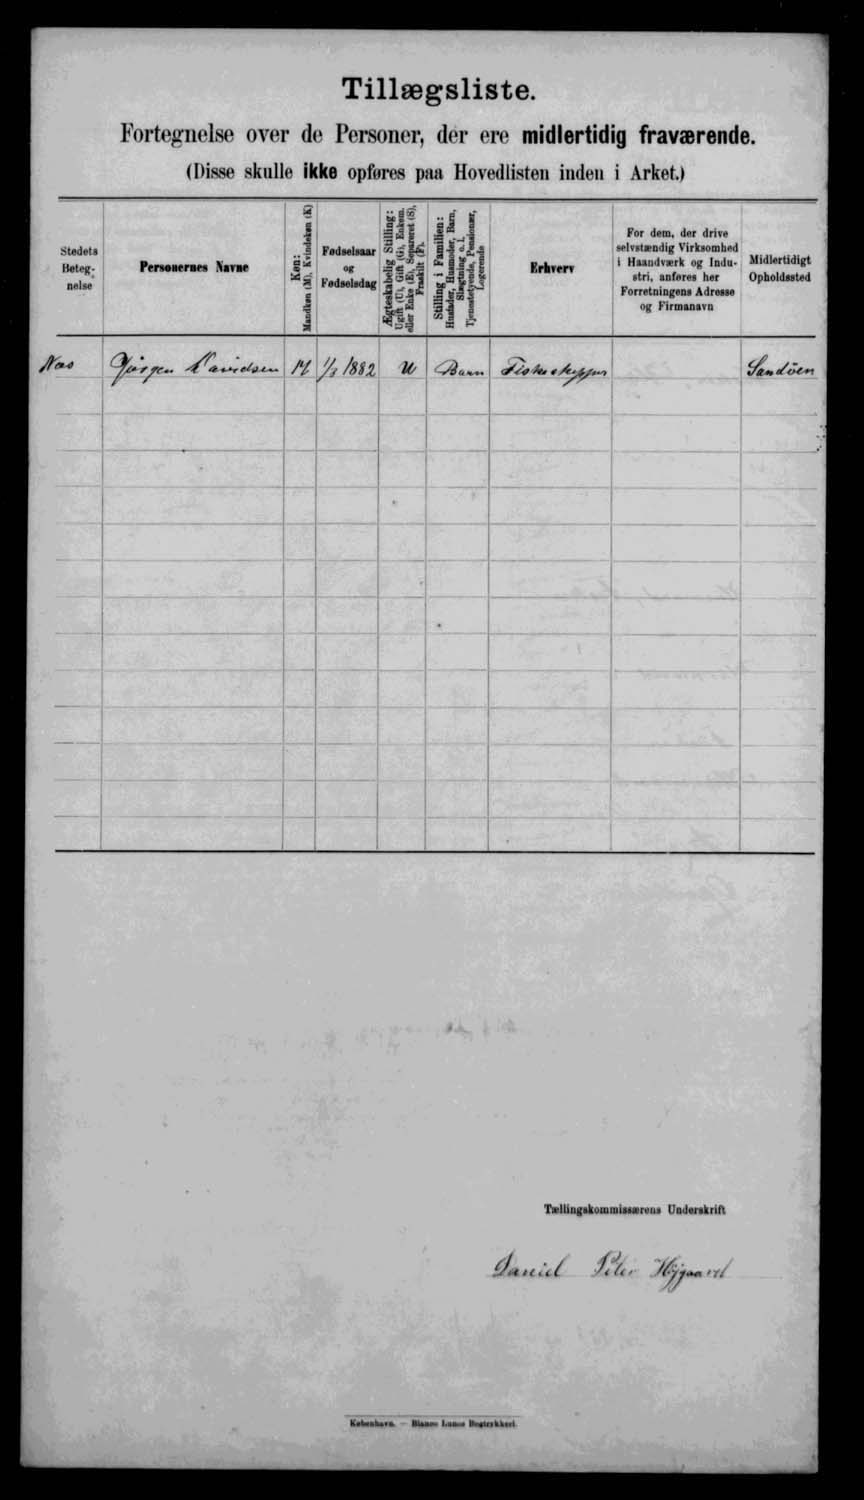 Tillægsliste.
Fortegnelse over de Personer, der ere midlertidig fraværende.
(Disse skulle ikke opføres paa Hovedlisten inden i Arket.)
Stedets
Beteg-
nelse
Personernes Navne
Køn:
Mandkøn (M), Kvindekøn (K)
Fødselsaar
og
Fødselsdag
Ægteskabelig Stilling:
Ugift (U), Gift (G), Enkem.
eller Enke (E), Separeret (S),
Fraskilt (F).
Stilling i Familien:
Husfader, Husmoder, Barn,
Slægtning o. l.
Tjenestetyende, Pensionær,
Logerende
Erhverv
For dem, der drive
selvstændig Virksomhed
i Haandværk og Indu-
stri, anføres her
Forretningens Adresse
og Firmanavn
Midlertidigt
Opholdssted
Næs Jørgen Davidsen M 1/3 1882 U Barn Fiskeskipper Sandöen
Tællingskommissærens Underskrift
Daniel Peter Højgaard
København. — Bianco Lunos Bogtrykkeri.